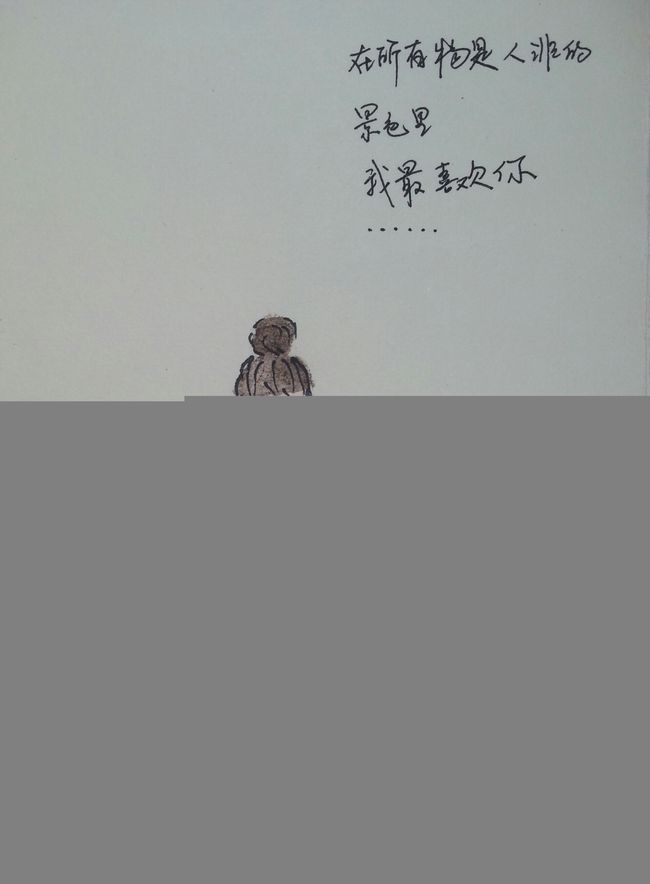 在所有物是人非的
景色里
我最喜欢你
......